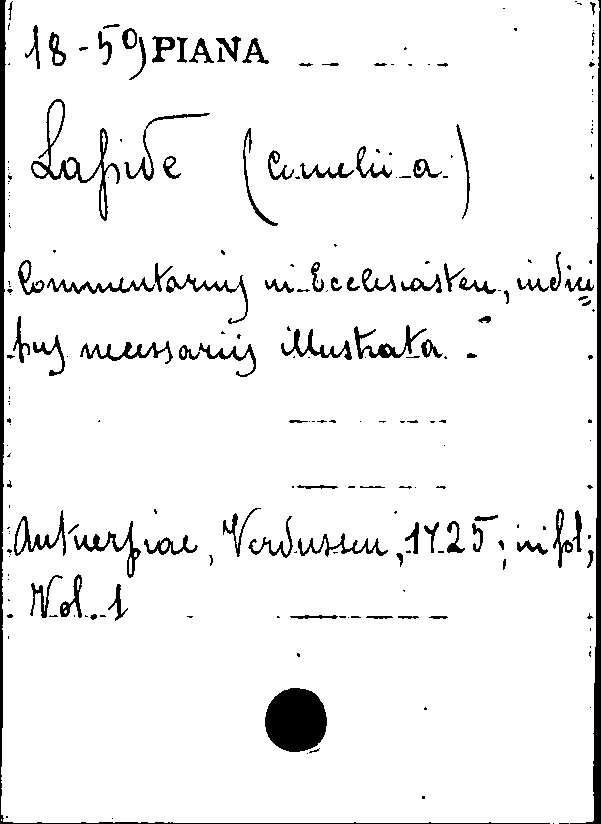 18-59 PIANA
Lapide (Cornelii a)
Commentarius in Ecclesiasten, indici=
bus necessariis illustrata.
Antuerpiae, Verdussen, 1725, in fol;
Vol. 1